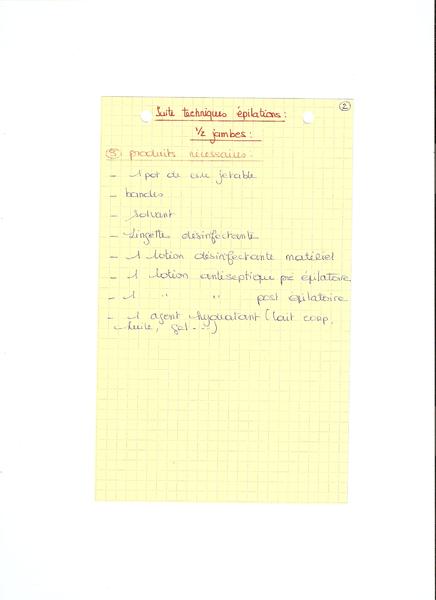 2
Suite techniques épilations :
1/2 jambes :
③ produits nécessaires.
- 1 pot de cire jetable
- bandes
- solvant
- lingette désinfectante
- 1 lotion désinfectante matériel
- 1 lotion antiseptique pré épilatoire
- 1 " " post épilatoire
- 1 agent hydratant (lait corp,
huile, gel...)